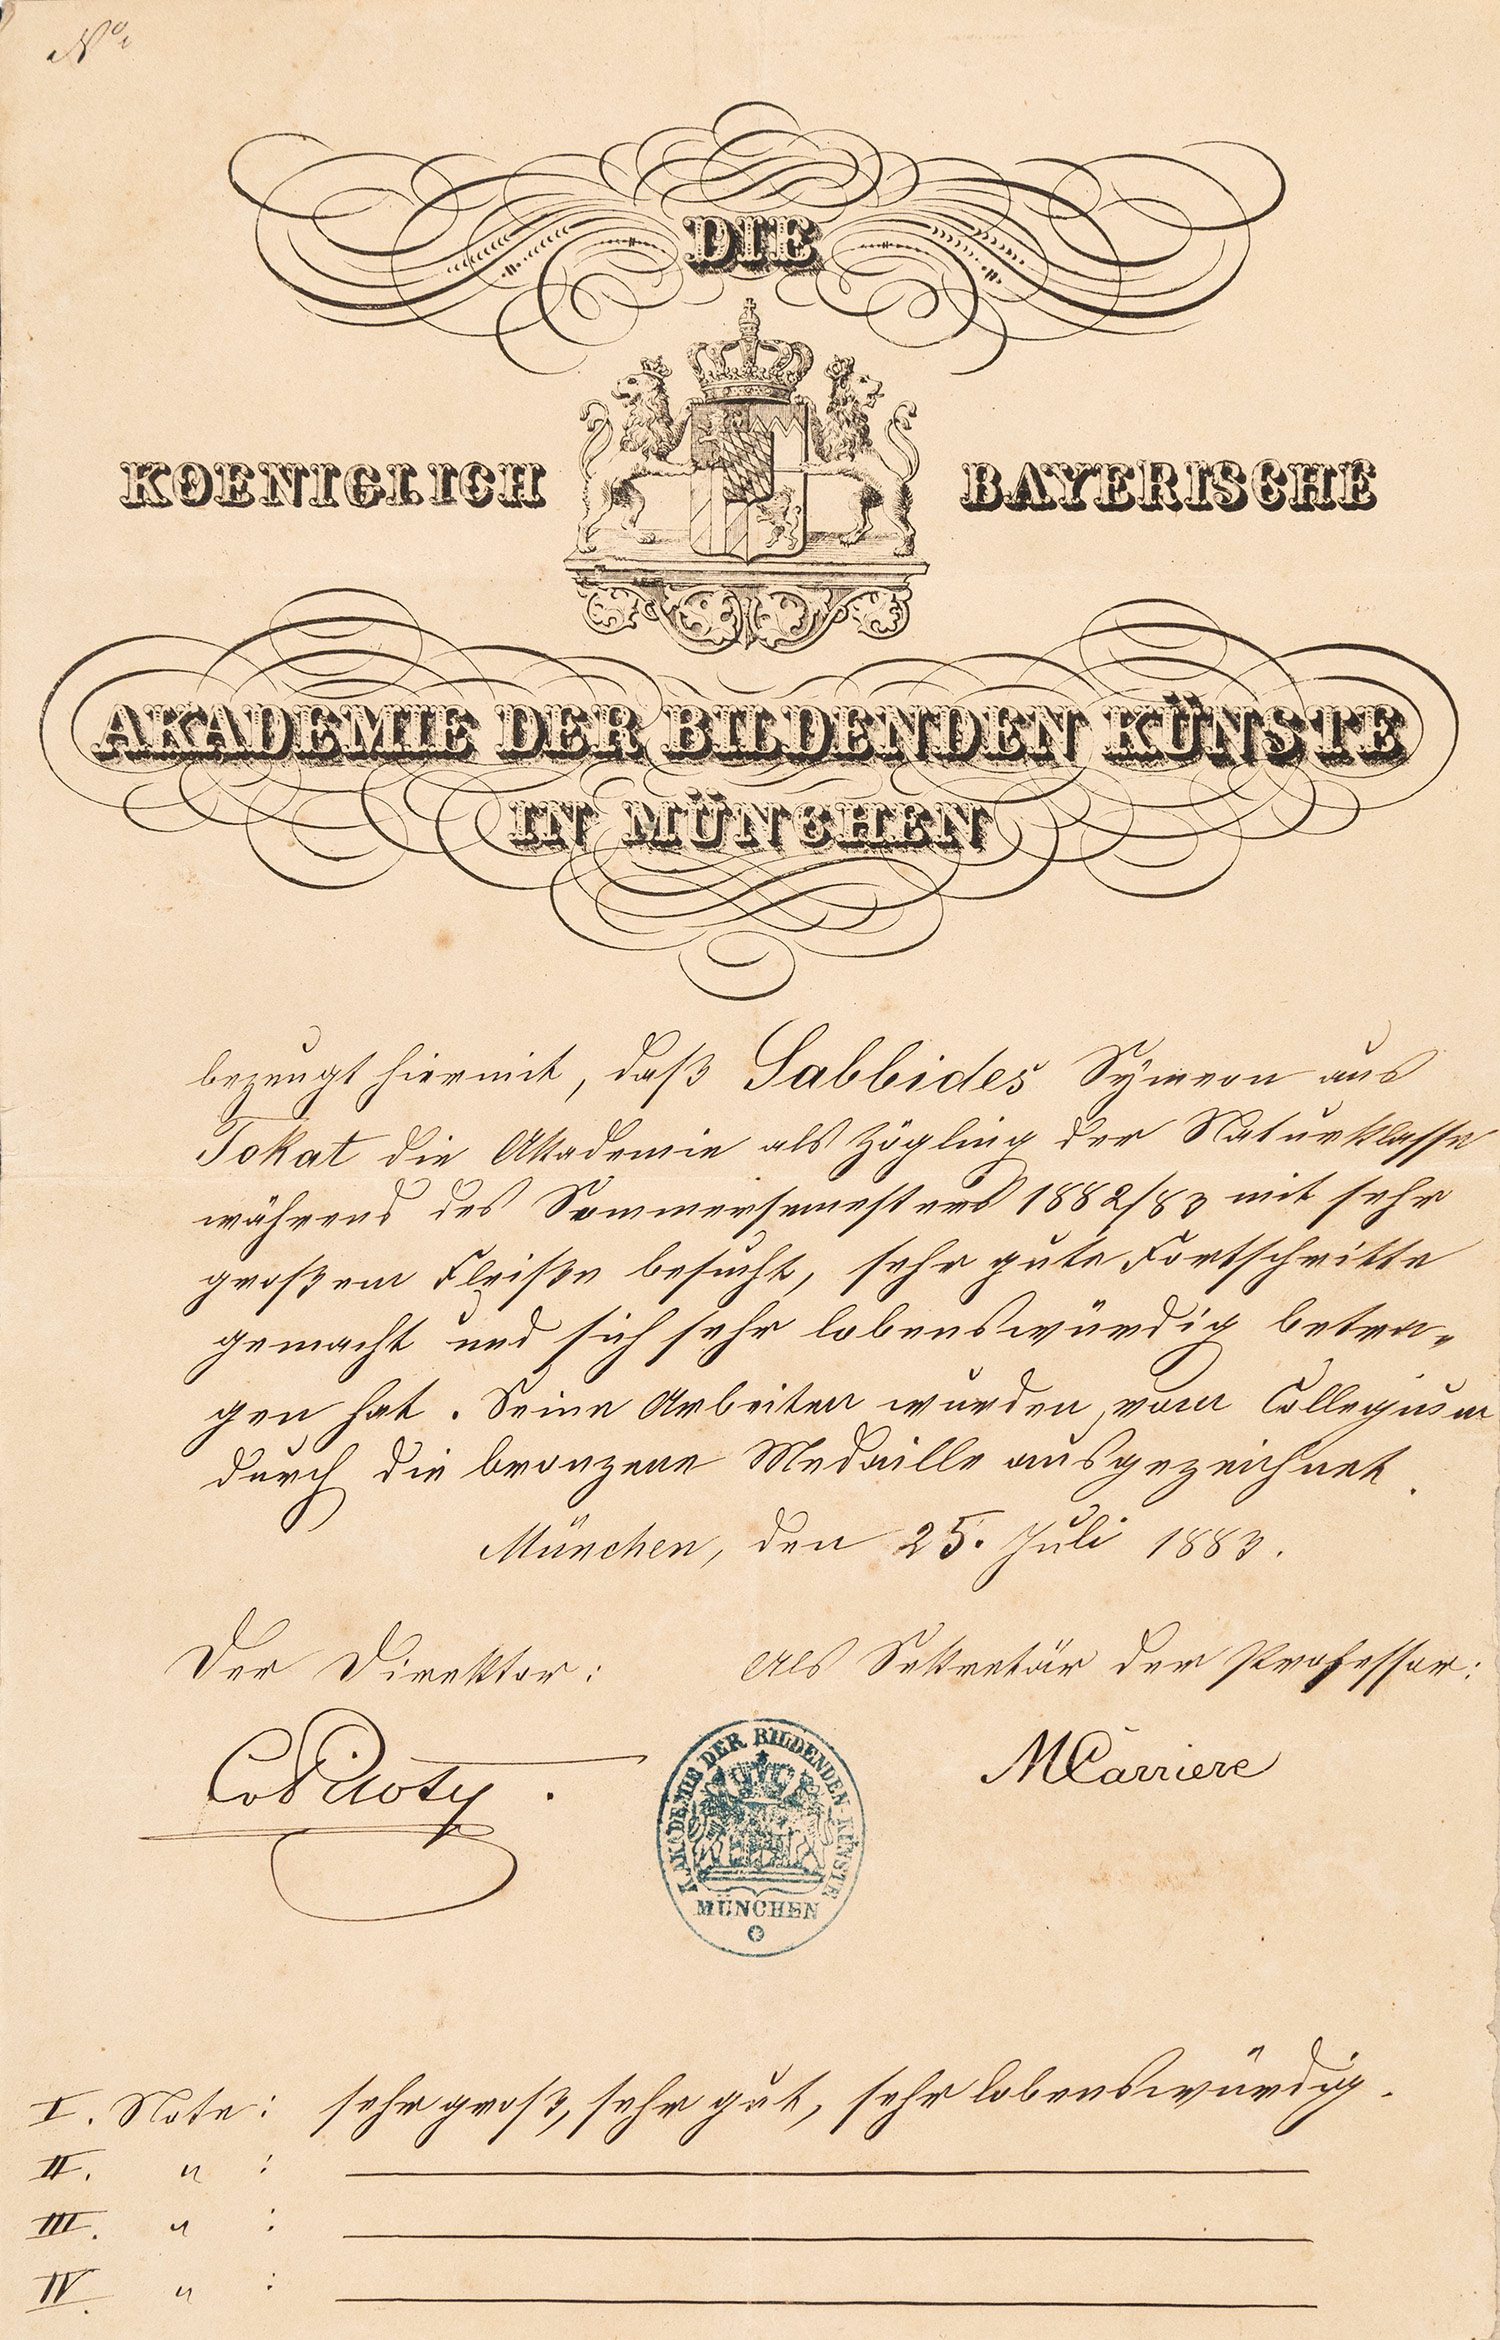 No
DIE
KOENIGLICH BAYERISCHE
AKADEMIE DER BILDENDEN KÜNSTE
IN MÜNCHEN
bezeugt hiermit, daß Sabbides Symeon aus
Tokat die Akademie als Zögling der Naturklasse
während des Sommersemesters 1882/83 mit sehr
großem Fleiße besucht, sehr gute Fortschritte
gemacht und sich sehr lobenswürdig betra-
gen hat. Seine Arbeiten wurden vom Collegium
durch die bronzene Medaille ausgezeichnet.
München, den 25. Juli 1883.
Der Direktor: Als Sekretär der Professor:
CvPiloty. MCarriere
K. AKADEMIE DER BILDENDEN KÜNSTE
MÜNCHEN
I. Note: sehr groß, sehr gut, sehr lobenswürdig.
II. " :
III. " :
IV. " :